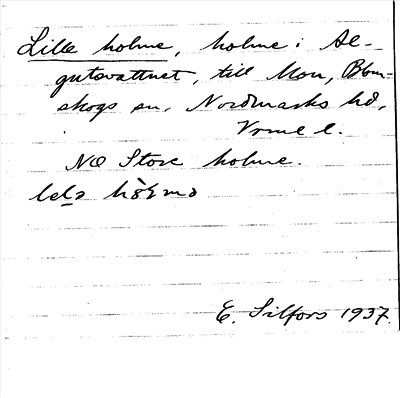 Lille holme, holme i Al-
gutsvattnet, till Mon, Blom-
skogs sn, Nordmarks hd,
Vrml l.
NO Store holme.
E. Silfors 1937.